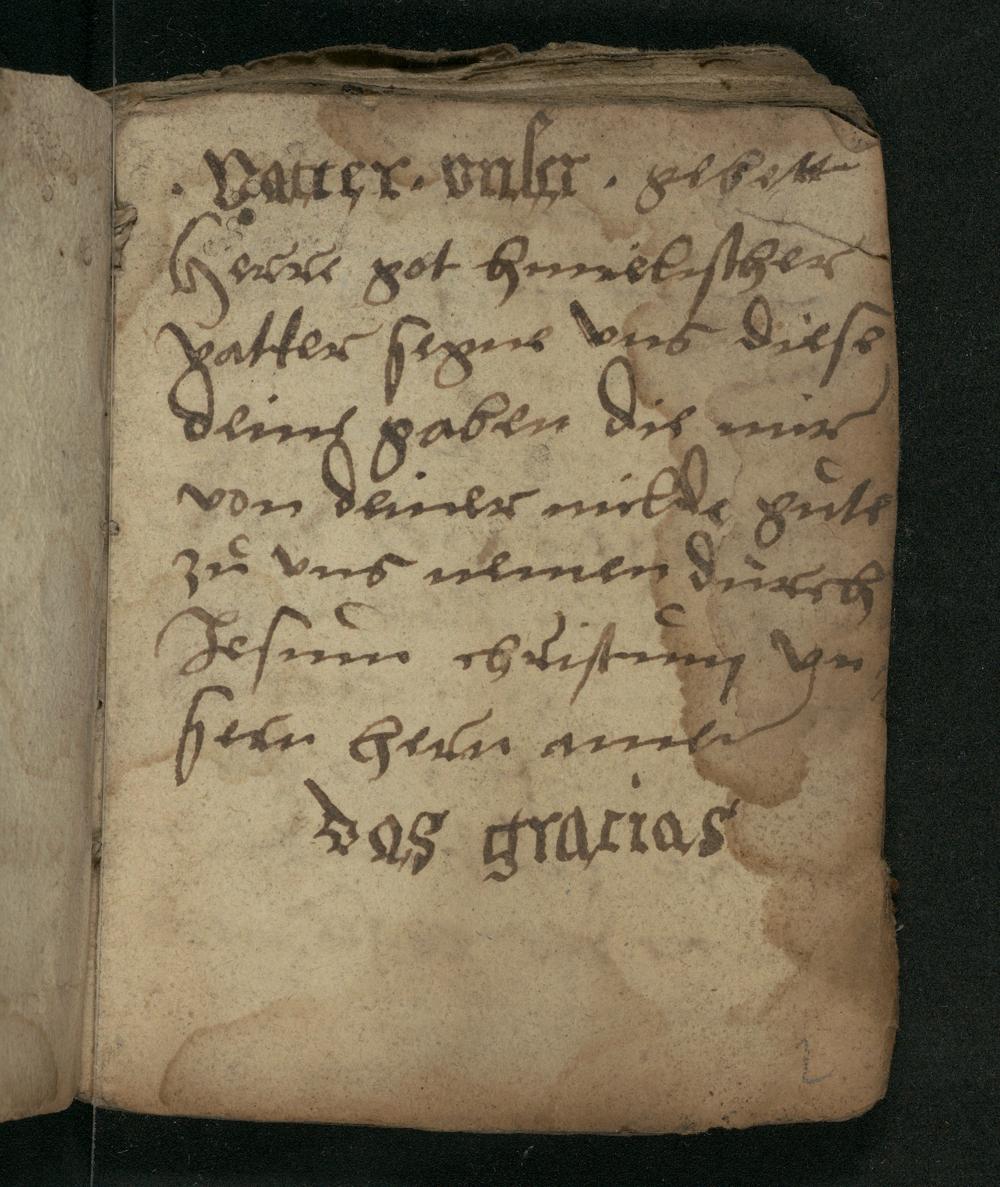 . Vatter . vnser . gebett
Herre got himelischer
vatter segne vns diese
deine gaben die mir
von deiner milde gute
zu vns nemen durch
Jesum christum vn
sern hern amen
das gracias